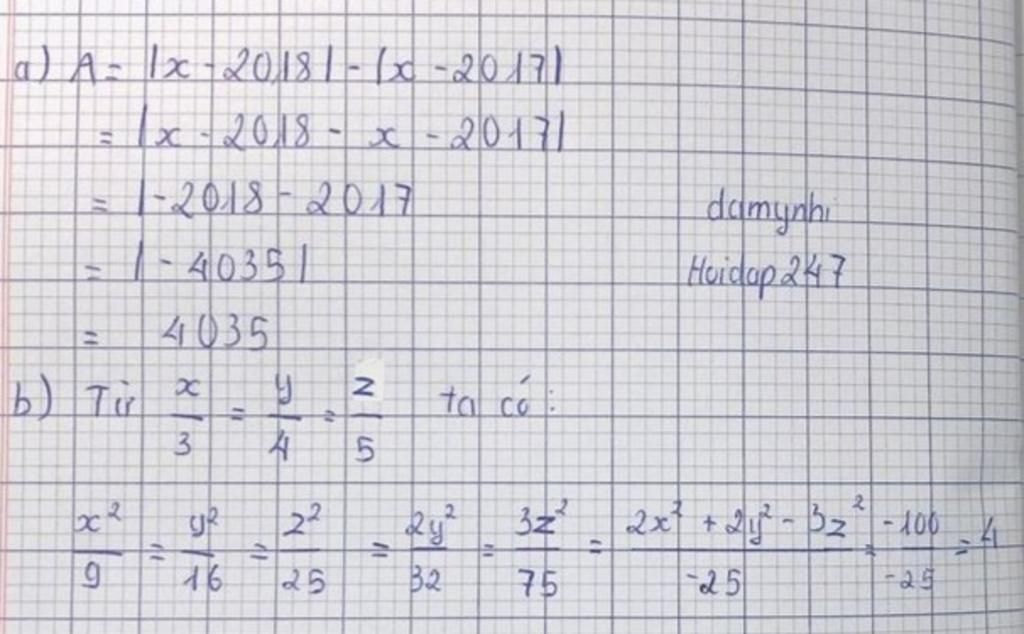 a) A = |x - 2018| - |x - 2017|
= |x - 2018 - x - 2017|
= |-2018 - 2017
damynhi
= |-4035|
Hoidap247
= 4035
b) Từ x/3 = y/4 = z/5 ta có:
x²/9 = y²/16 = z²/25 = 2y²/32 = 3z²/75 = (2x² + 2y² - 3z²)/-25 = -100/-25 = 4